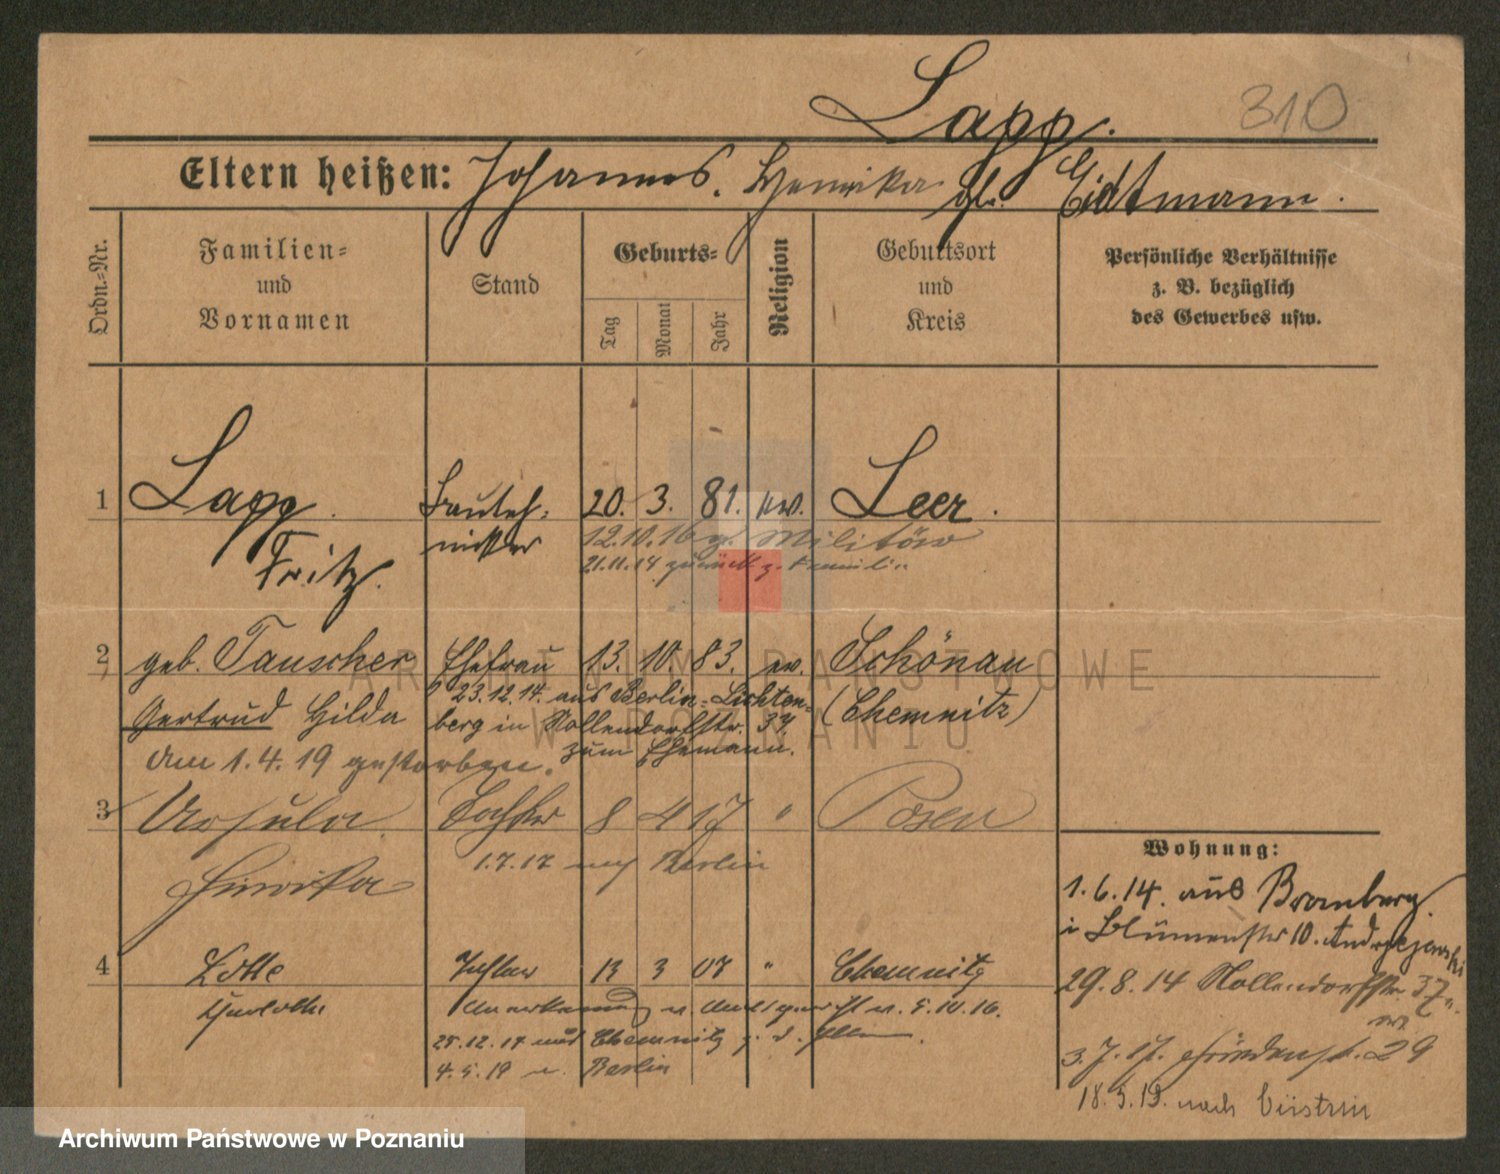 Lapp.
310
Eltern heißen: Johannes. Henrika geb. Eidtmann.
Ordn.-Nr.
Familien- und Vornamen
Stand
Geburts-
Tag
Monat
Jahr
Religion
Geburtsort und Kreis
Persönliche Verhältnisse
z. B. bezüglich
des Gewerbes usw.
1 Lapp. Bautech- 20. 3. 81. ev. Leer.
Fritz. niker
12.10.16 z. Militär
21.11.14 zurück z. Familie
2 geb. Tauscher Ehefrau 13. 10 83. ev. Schönau
Gertrud Hilda (Chemnitz)
23.12.14. aus Berlin-Lichten-
berg in Nollendorfstr. 37
zum Ehemann.
Am 1.4.19 gestorben.
3 Ursula Tochter 8 4 17 " Posen
Henrika
1.7.17 nach Berlin
4 Lotte Tochter 13 3 07 " Chemnitz
Charlotte
Anerkennung v. Amtsgericht v. 5.10.16.
25.12.17 Chemnitz z. d.
4.5.19 n. Berlin
Wohnung:
1.6.14. aus Bromberg.
i Blumenstr 10.
29.8.14 Nollendorfstr. 37
3.7.17. 29
18.5.19. nach Cüstrin
ARCHIWUM PAŃSTWOWE
W POZNANIU
Archiwum Państwowe w Poznaniu